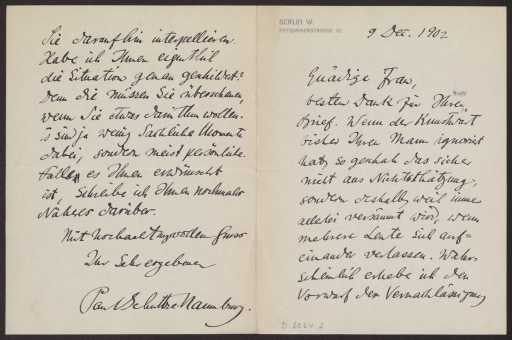 BERLIN W.
9 Dec. 1902
Gnädige Frau,
besten Dank für Ihren
Brief. Wenn der Kunstwart
bisher Ihren Mann ignorirt
hat, so geschah das sicher
nicht aus Nichtschätzung,
sondern deshalb, weil immer
allerlei versäumt wird, wenn
mehrere Leute sich auf-
einander verlassen. Wahr-
scheinlich erhebe ich den
Vorwurf der Vernachlässigung
Sie daraufhin interpellieren.
Habe ich Ihnen eigentlich
die Situation genau geschildert?
Denn die müssen Sie übersehen,
wenn Sie etwas darin thun wollen.
Es sind ja wenig sachliche Momente
dabei, sondern meist persönliche.
Falls es Ihnen erwünscht
ist, schreibe ich Ihnen nochmals
Näheres darüber.
Mit hochachtungsvollem Gruss
Ihr sehr ergebener
Paul Schultze Naumburg.